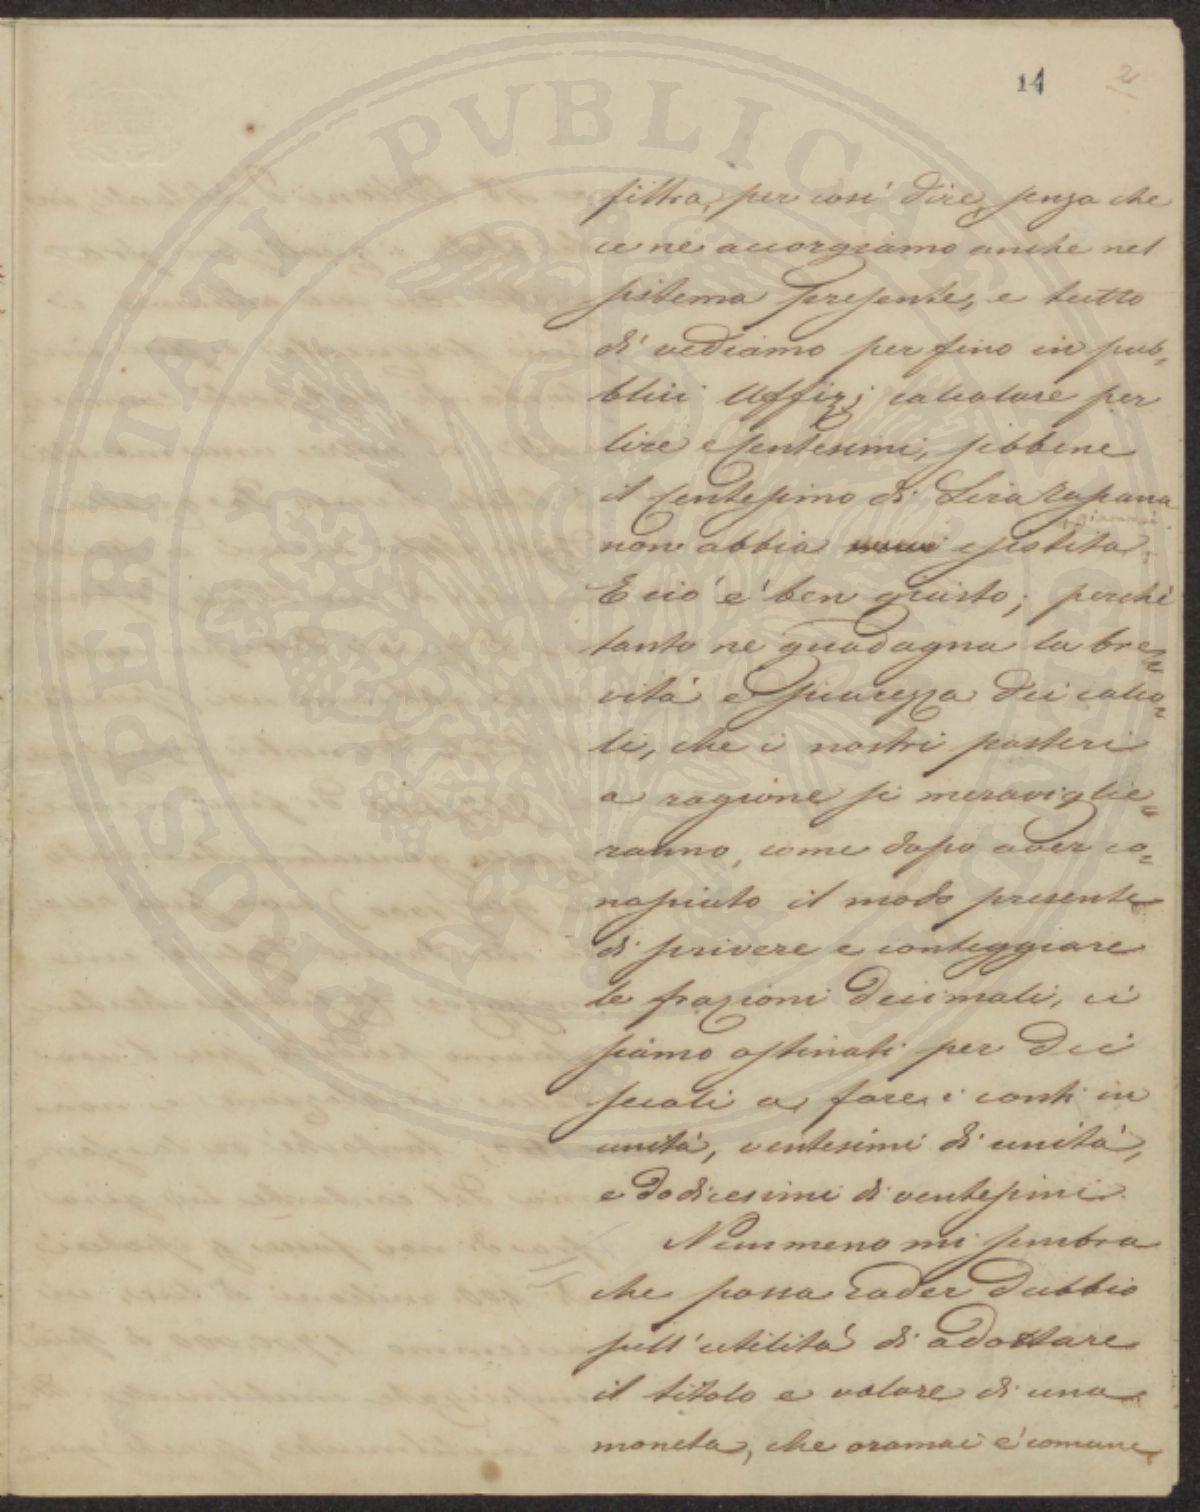 14 2
filtra, per così dire, senza che
ce ne accorgiamo anche nel
sistema presente, e tutto
dì vediamo per fino in pub=
blici Uffizj calcolare per
lire e Centesimi, sibbene
il Centesimo di Lira Tospana
giammai
non abbia mai esistito.
E ciò è ben giusto; perchè
tanto ne guadagna la bre=
vità e sicurezza dei calco=
li, che i nostri posteri
a ragione si meraviglie=
ranno, come dopo aver co=
nosciuto il modo presente
di scrivere e conteggiare
le frazioni decimali, ci
siamo ostinati per dieci
secoli a fare i conti in
unità, ventesimi di unità,
e dodicesimi di ventesimi.
Nemmeno mi sembra
che possa cader dubbio
sull'utilità di adottare
il titolo e valore di una
moneta, che oramai è comune
PROSPERITATI PVBLICAE